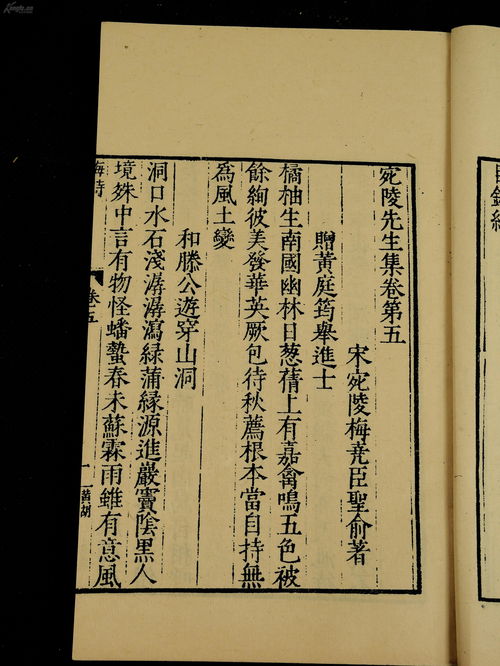 宛陵先生集卷第五
宋宛陵梅堯臣聖俞著
贈黃庭筠舉進士
橘柚生南國幽林日葱蒨上有嘉禽鳴五色被
餘絢彼美發華英厥包待秋薦根本當自持無
為風土變
和滕公遊穿山洞
洞口水石淺潺潺瀉緑蒲緣源進巖竇陰黑人
境殊中言有物怪蟠蟄春未蘇霖雨雖有意風
梅詩
卷五
一
黃胡